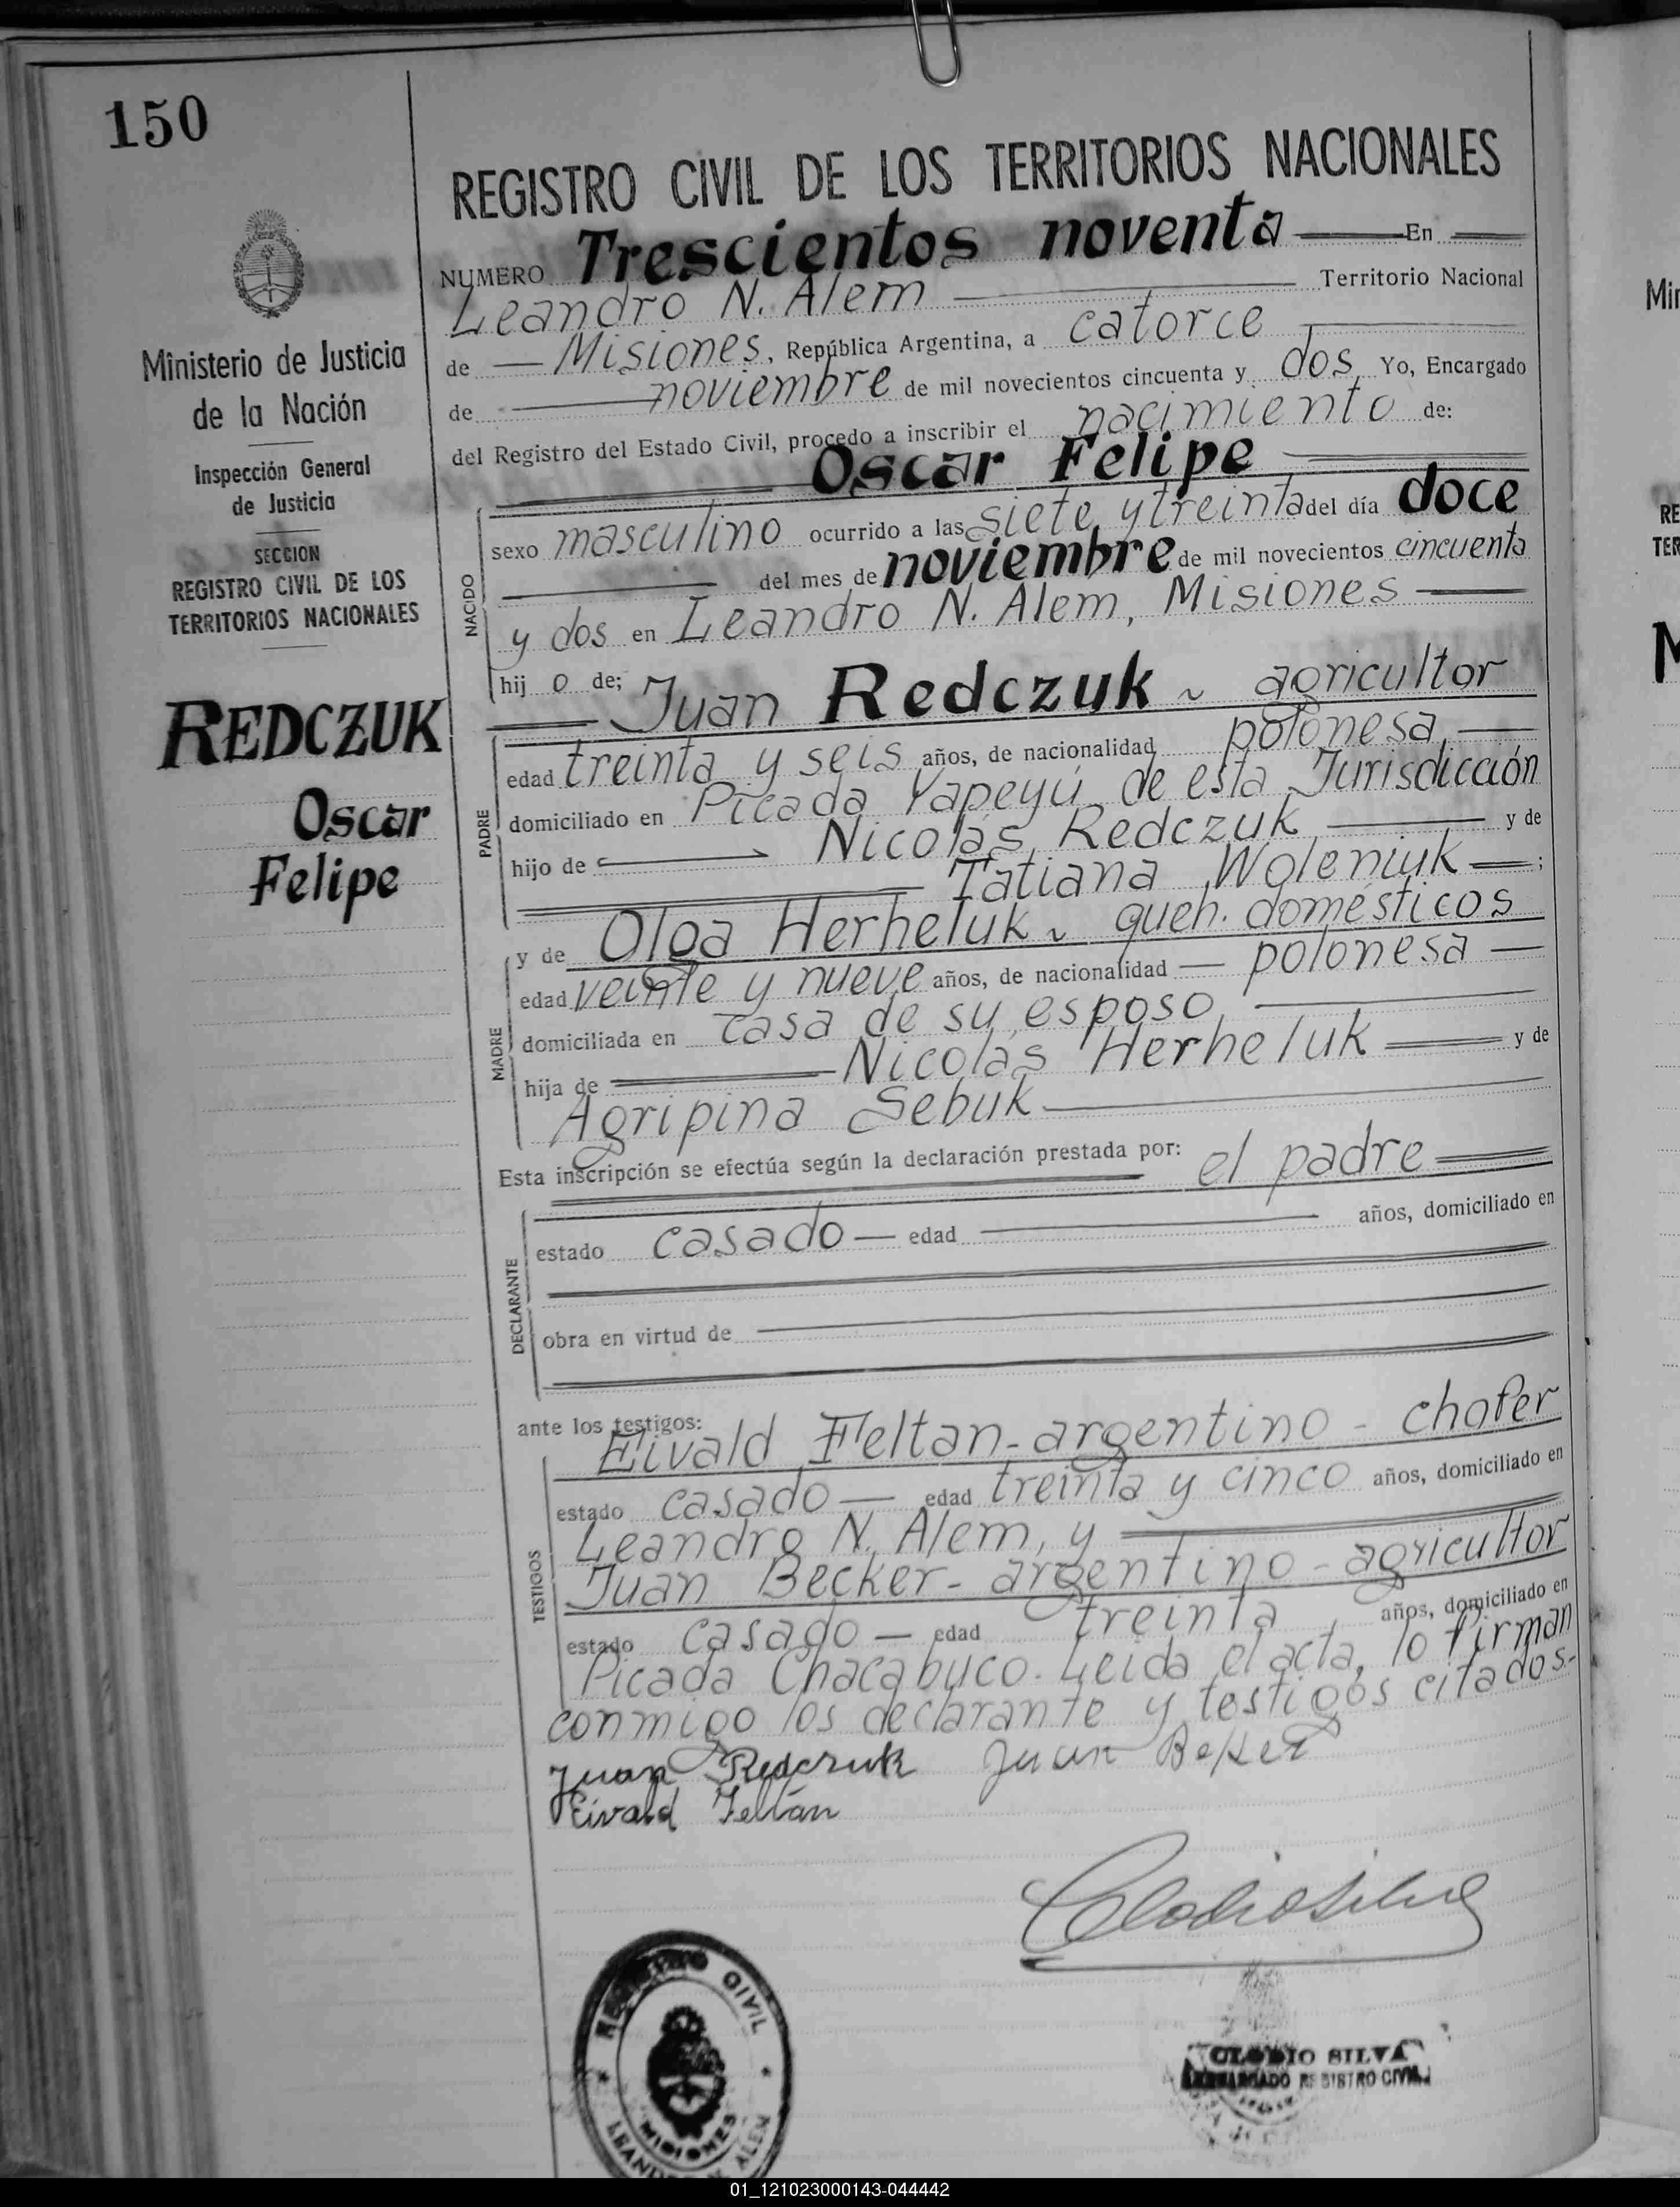 150
Ministerio de Justicia
de la Nación
Inspección General
de Justicia
SECCION
REGISTRO CIVIL DE LOS
TERRITORIOS NACIONALES
REDCZUK
Oscar
Felipe
REGISTRO CIVIL DE LOS TERRITORIOS NACIONALES
NUMERO Trescientos noventa En
Leandro N. Alem Territorio Nacional
de Misiones, República Argentina, a catorce
de noviembre de mil novecientos cincuenta y dos, Yo, Encargado
del Registro del Estado Civil, procedo a inscribir el nacimiento de:
Oscar Felipe
NACIDO
sexo masculino ocurrido a las siete y treinta del día doce
del mes de noviembre de mil novecientos cincuenta
y dos en Leandro N. Alem, Misiones
hij o de; Juan Redczuk ~ agricultor
PADRE
edad treinta y seis años, de nacionalidad polonesa,
domiciliado en Picada Yapeyú, de esta Jurisdicción
hijo de Nicolás Redczuk y de
Tatiana Woleniuk ;
y de Olga Herheluk ~ queh. domésticos
MADRE
edad veinte y nueve años, de nacionalidad polonesa
domiciliada en casa de su esposo,
hija de Nicolás Herheluk y de
Agripina Sebuk
Esta inscripción se efectúa según la declaración prestada por: el padre
DECLARANTE
estado casado edad años, domiciliado en
obra en virtud de
ante los testigos:
TESTIGOS
Eivald Feltan - argentino - chofer
estado casado edad treinta y cinco años, domiciliado en
Leandro N. Alem, y
Juan Becker - argentino - agricultor
estado casado edad treinta, años, domiciliado en
Picada Chacabuco. Leida el acta, lo firman
conmigo los declarante y testigos citados.-
Juan Redczuk Juan Beker
Eivald Feltan
Clodio Silva
REGISTRO CIVIL
MISIONES
LEANDRO N. ALEM
CLODIO SILVA
ENCARGADO REGISTRO CIVIL
01_121023000143-044442